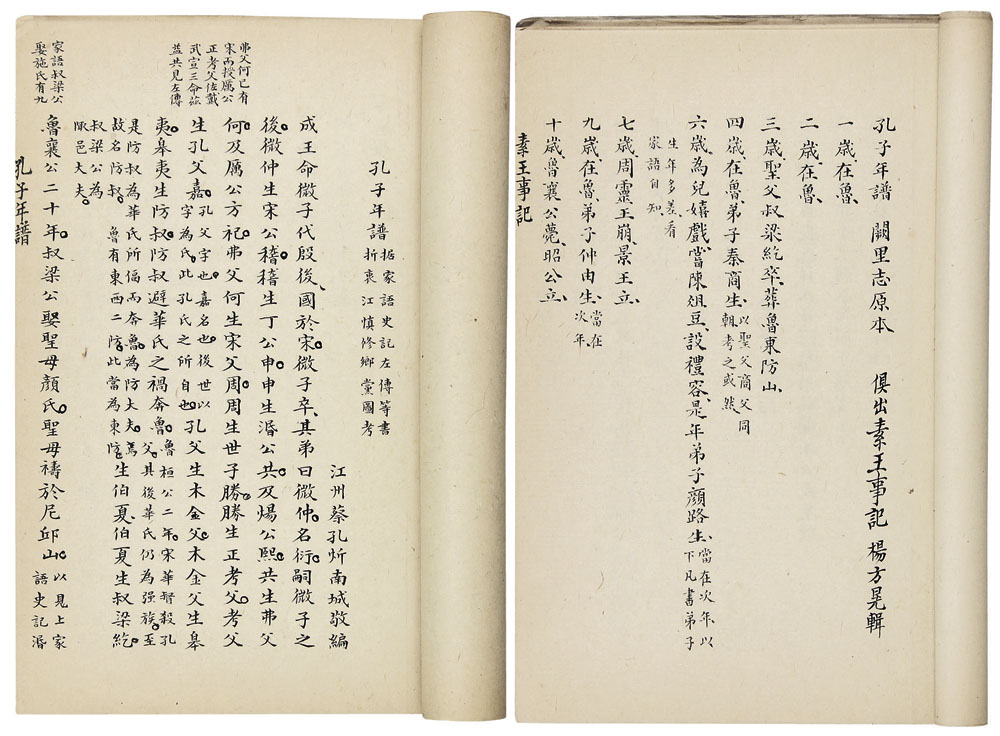 孔子年譜 闕里志原本 俱出素王事記 楊方晃輯
一歲、在魯、
二歲、在魯、
三歲、聖父叔梁紇卒、葬魯東防山、
四歲、在魯、弟子秦商生、以聖父商父同
輯考之或然、
六歲、為兒嬉戲、當陳俎豆、設禮容、是年弟子顏路生、當在次年以
下凡書弟子
生年多差看
家語自知、
七歲、周靈王崩、景王立、
九歲、在魯、弟子仲由生、當在
次年、
十歲、魯襄公薨、昭公立、
素王事記
孔子年譜 据家語史記左傳等書
折衷江慎修鄉黨圖考
江州蔡孔炘南城敬編
成王命微子代殷後、國於宋。微子卒、其弟曰微仲。名衍。嗣微子之
後。微仲生宋公稽。稽生丁公申。申生湣公共。及煬公熙。共生弗父
何。及厲公方祀。弗父何生宋父周。周生世子勝。勝生正考父。考父
生孔父嘉。孔父字也。嘉名也。後世以
字為氏。此孔氏之所自也。孔父生木金父。木金父生皋
夷。皋夷生防叔。防叔避華氏之禍奔魯。魯桓公二年。宋華督殺孔
父。其後華氏仍為强族。至
是防叔為華氏所偪而奔魯。為防大夫。焉
故名防叔。魯有東西二防。此當為東防。生伯夏。伯夏生叔梁紇。
叔梁公為
陬邑大夫。
魯襄公二十年。叔梁公娶聖母顏氏。聖母禱於尼邱山。以見上家
語史記湣
孔子年譜
弗父何已有
宋而授厲公
正考父佐戴
武宣三命茲
益共見左傳
家語叔梁公
娶施氏有九